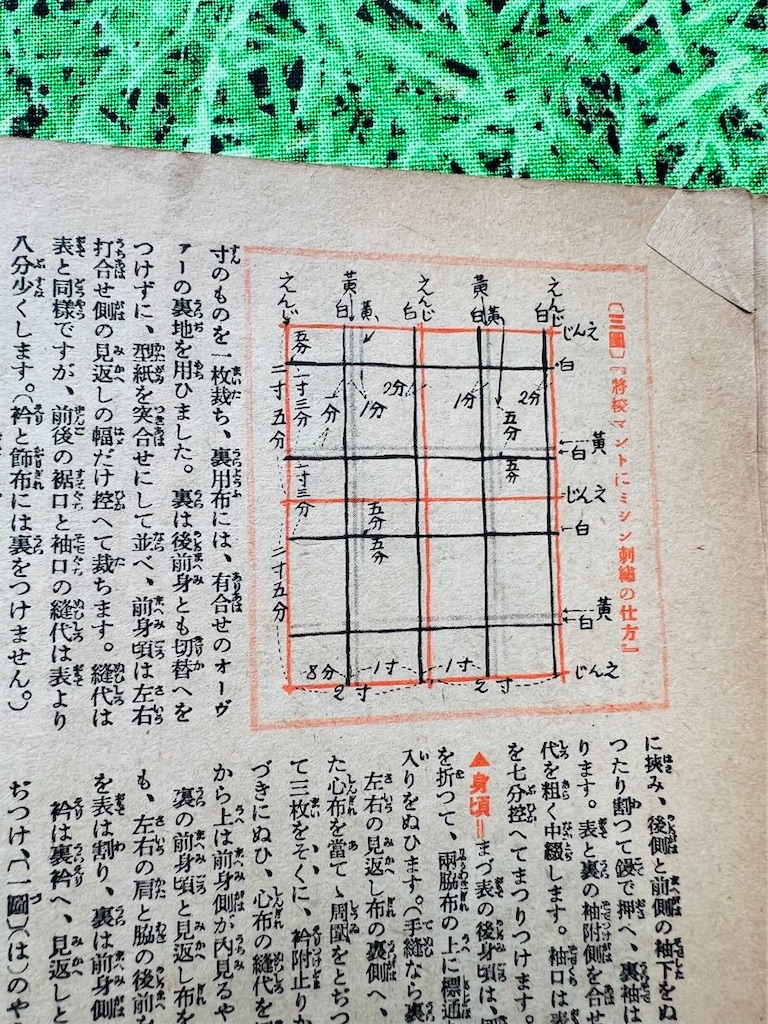 〔三圖〕『將校マントにミシン刺繡の仕方』
えんじ
白
黃
白
黃
えんじ
白
黃
白
黃
えんじ
えんじ
白
黃
白
えんじ
白
黃
白
えんじ
五分
一寸三分
二寸五分
一寸三分
二寸五分
1分
2分
1分
2分
五分
五分
五分
五分
8分
1寸
1寸
2寸
2寸
寸のものを一枚裁ち、裏用布には、有合せのオーヴ
ァーの裏地を用ひました。裏は後前身とも切替へを
つけずに、型紙を突合せにして並べ、前身頃は左右
打合せ側の見返しの幅だけ控へて裁ちます。縫代は
表と同樣ですが、前後の裾口と袖口の縫代は表より
八分少くします。（衿と飾布には裏をつけません。）
に挾み、後側と前側の袖下をぬ
つたり割つて鏝で押へ、裏袖は
ります。表と裏の袖附側を合せ
代を粗く中綴します。袖口は表
を七分控へてまつりつけます。
▲身頃＝まづ表の後身頃は、
を折つて、兩脇布の上に標通
入りをぬひます。（手縫なら裏
左右の見返し布の裏側へ、
た心布を當てゝ周圍をとぢつ
て三枚をそくに、衿附止りか
づきにぬひ、心布の縫代を
から上は前身側が内見るや
裏の前身頃と見返し布を
も、左右の肩と脇の後前を
を表は割り、裏は前身側
衿は裏衿へ、見返しと
ぢつけ、〔一圖〕（は）のや